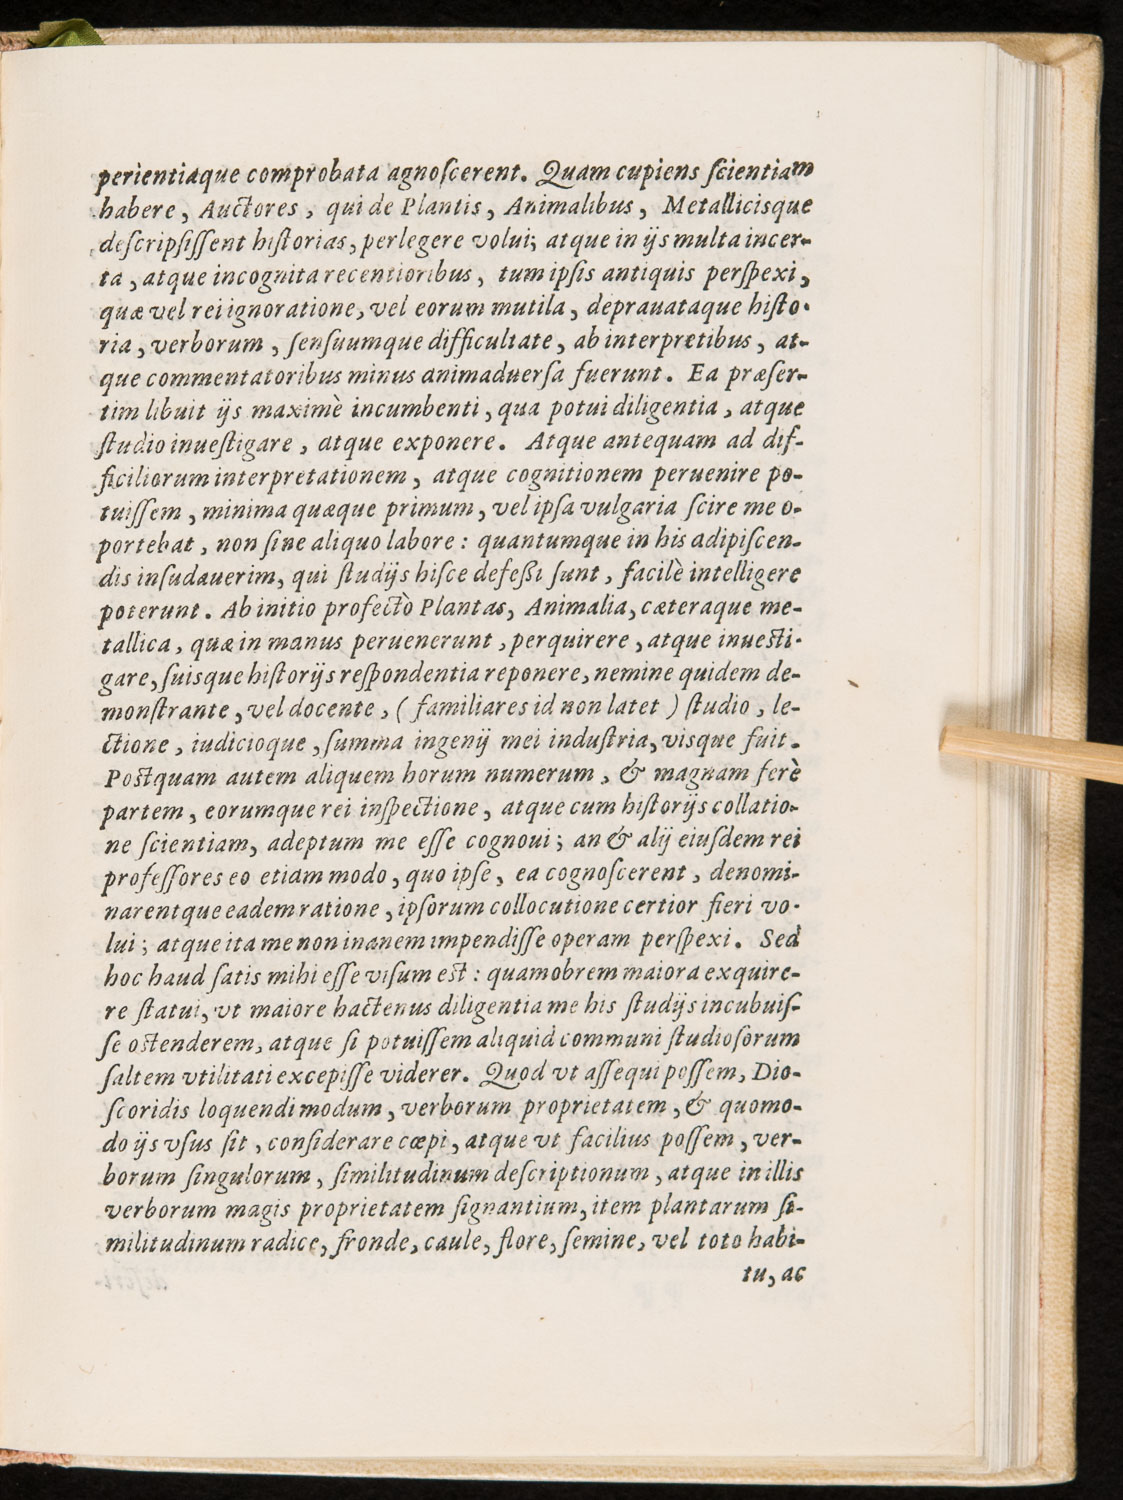 perientiaque comprobata agnoſcerent. Quam cupiens ſcientiam
habere, Auctores, qui de Plantis, Animalibus, Metallicisque
deſcripſiſſent hiſtorias, perlegere volui; atque in ijs multa incer-
ta, atque incognita recentioribus, tum ipſis antiquis perſpexi,
quæ vel rei ignoratione, vel eorum mutila, deprauataque hiſto-
ria, verborum, ſenſuumque difficultate, ab interpretibus, at-
que commentatoribus minus animaduerſa fuerunt. Ea præſer-
tim libuit ijs maximè incumbenti, qua potui diligentia, atque
ſtudio inueſtigare, atque exponere. Atque antequam ad dif-
ficiliorum interpretationem, atque cognitionem peruenire po-
tuiſſem, minima quæque primum, vel ipſa vulgaria ſcire me o-
portebat, non ſine aliquo labore: quantumque in his adipiſcen-
dis inſudauerim, qui ſtudijs hiſce defeßi ſunt, facilè intelligere
poterunt. Ab initio profectò Plantas, Animalia, cæteraque me-
tallica, quæ in manus peruenerunt, perquirere, atque inueſti-
gare, ſuisque hiſtorijs reſpondentia reponere, nemine quidem de-
monſtrante, vel docente, (familiares id non latet) ſtudio, le-
ctione, iudicioque, ſumma ingenij mei induſtria, viſque fuit.
Poſtquam autem aliquem horum numerum, & magnam ferè
partem, eorumque rei inſpectione, atque cum hiſtorijs collatio-
ne ſcientiam, adeptum me eſſe cognoui; an & alij eiuſdem rei
profeſſores eo etiam modo, quo ipſe, ea cognoſcerent, denomi-
narentque eadem ratione, ipſorum collocutione certior fieri vo-
lui; atque ita me non inanem impendiſſe operam perſpexi. Sed
hoc haud ſatis mihi eſſe viſum eſt: quamobrem maiora exquire-
re ſtatui, vt maiore hactenus diligentia me his ſtudijs incubuiſ-
ſe oſtenderem, atque ſi potuiſſem aliquid communi ſtudioſorum
ſaltem vtilitati excepiſſe viderer. Quod vt aſſequi poſſem, Dio-
ſcoridis loquendi modum, verborum proprietatem, & quomo-
do ijs vſus ſit, conſiderare cœpi, atque vt facilius poſſem, ver-
borum ſingulorum, ſimilitudinum deſcriptionum, atque in illis
verborum magis proprietatem ſignantium, item plantarum ſi-
militudinum radice, fronde, caule, flore, ſemine, vel toto habi-
tu, ac